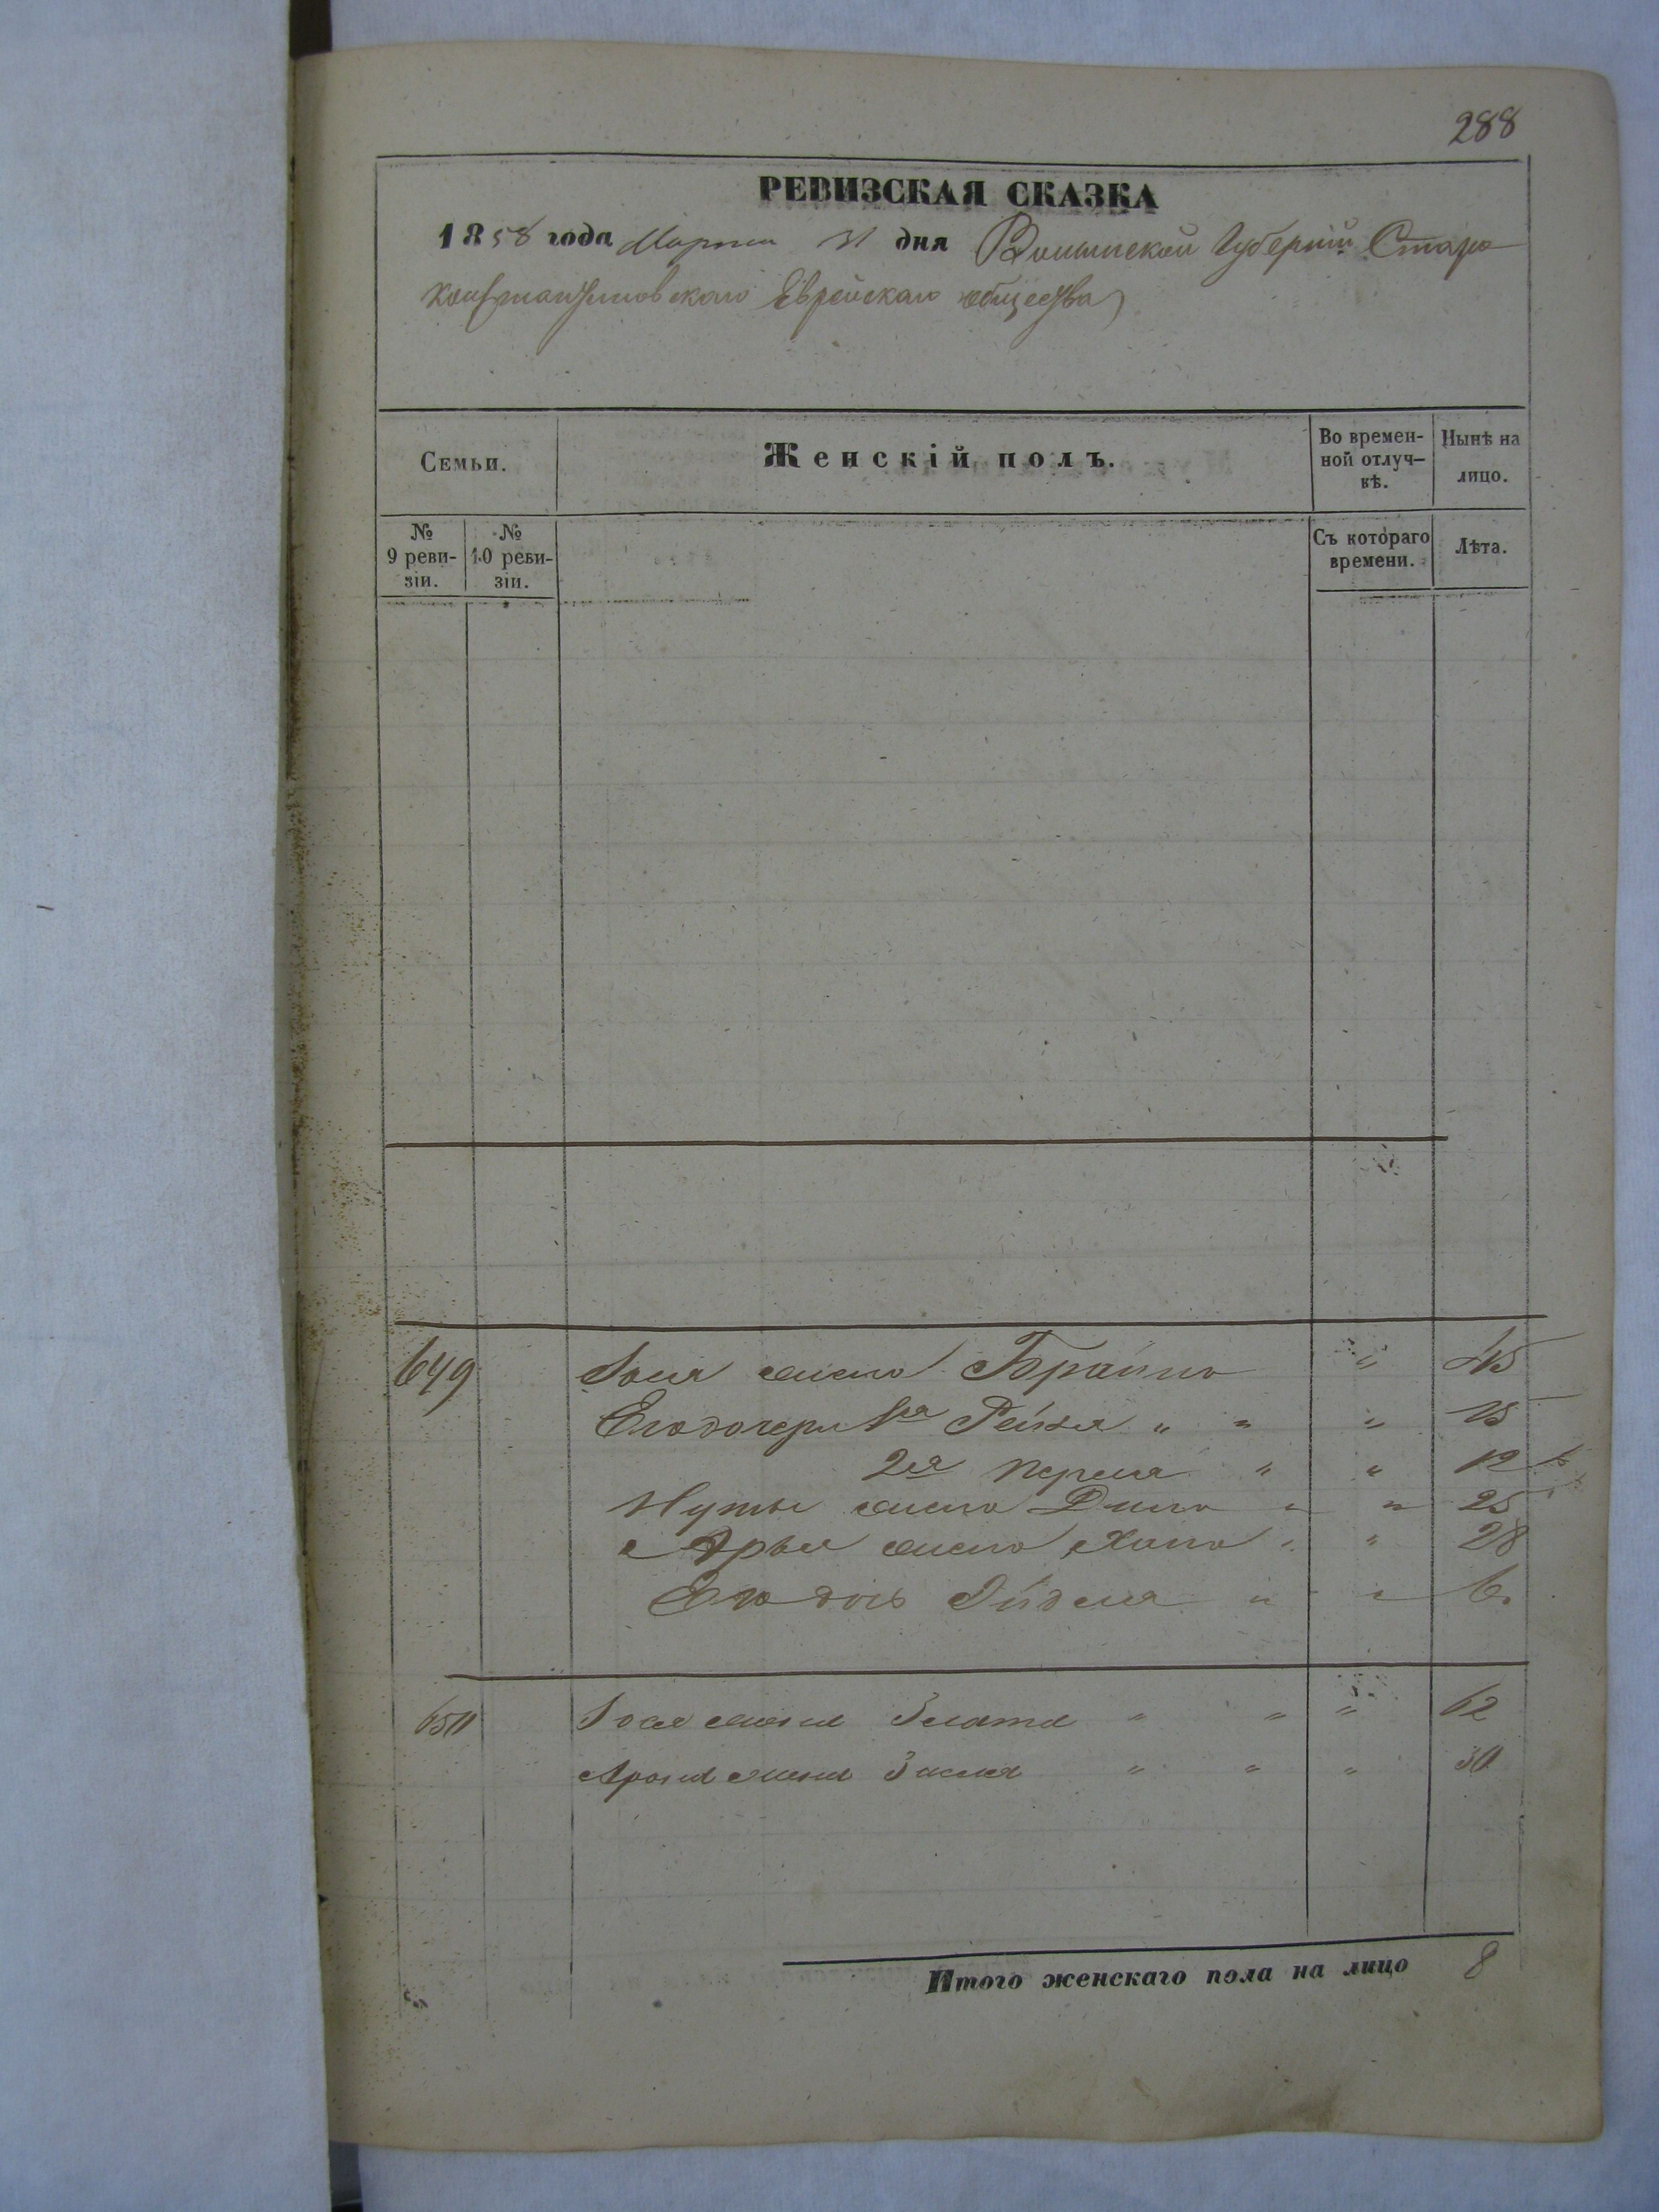 288
РЕВИЗСКАЯ СКАЗКА
1858 года Марта 31 дня Волынской Губерніи Старо
константиновскаго Еврейскаго общества
Семьи.
Женскій полъ.
Во времен-
ной отлуч-
кѣ.
Нынѣ на
лицо.
№
9 реви-
зіи.
№
10 реви-
зіи.
Съ котораго
времени.
Лѣта.
649 жена Брайна " 45
Его дочери 1я Рейзя " " " 15
2я Перля " " 12
жена Дина " " 25
Арья жена Хана " " 28
Его дочь Эйдля " " 6
650 жена Злата " " " 62
Арона жена Зисля " " " 30
Итого женскаго пола на лицо 8